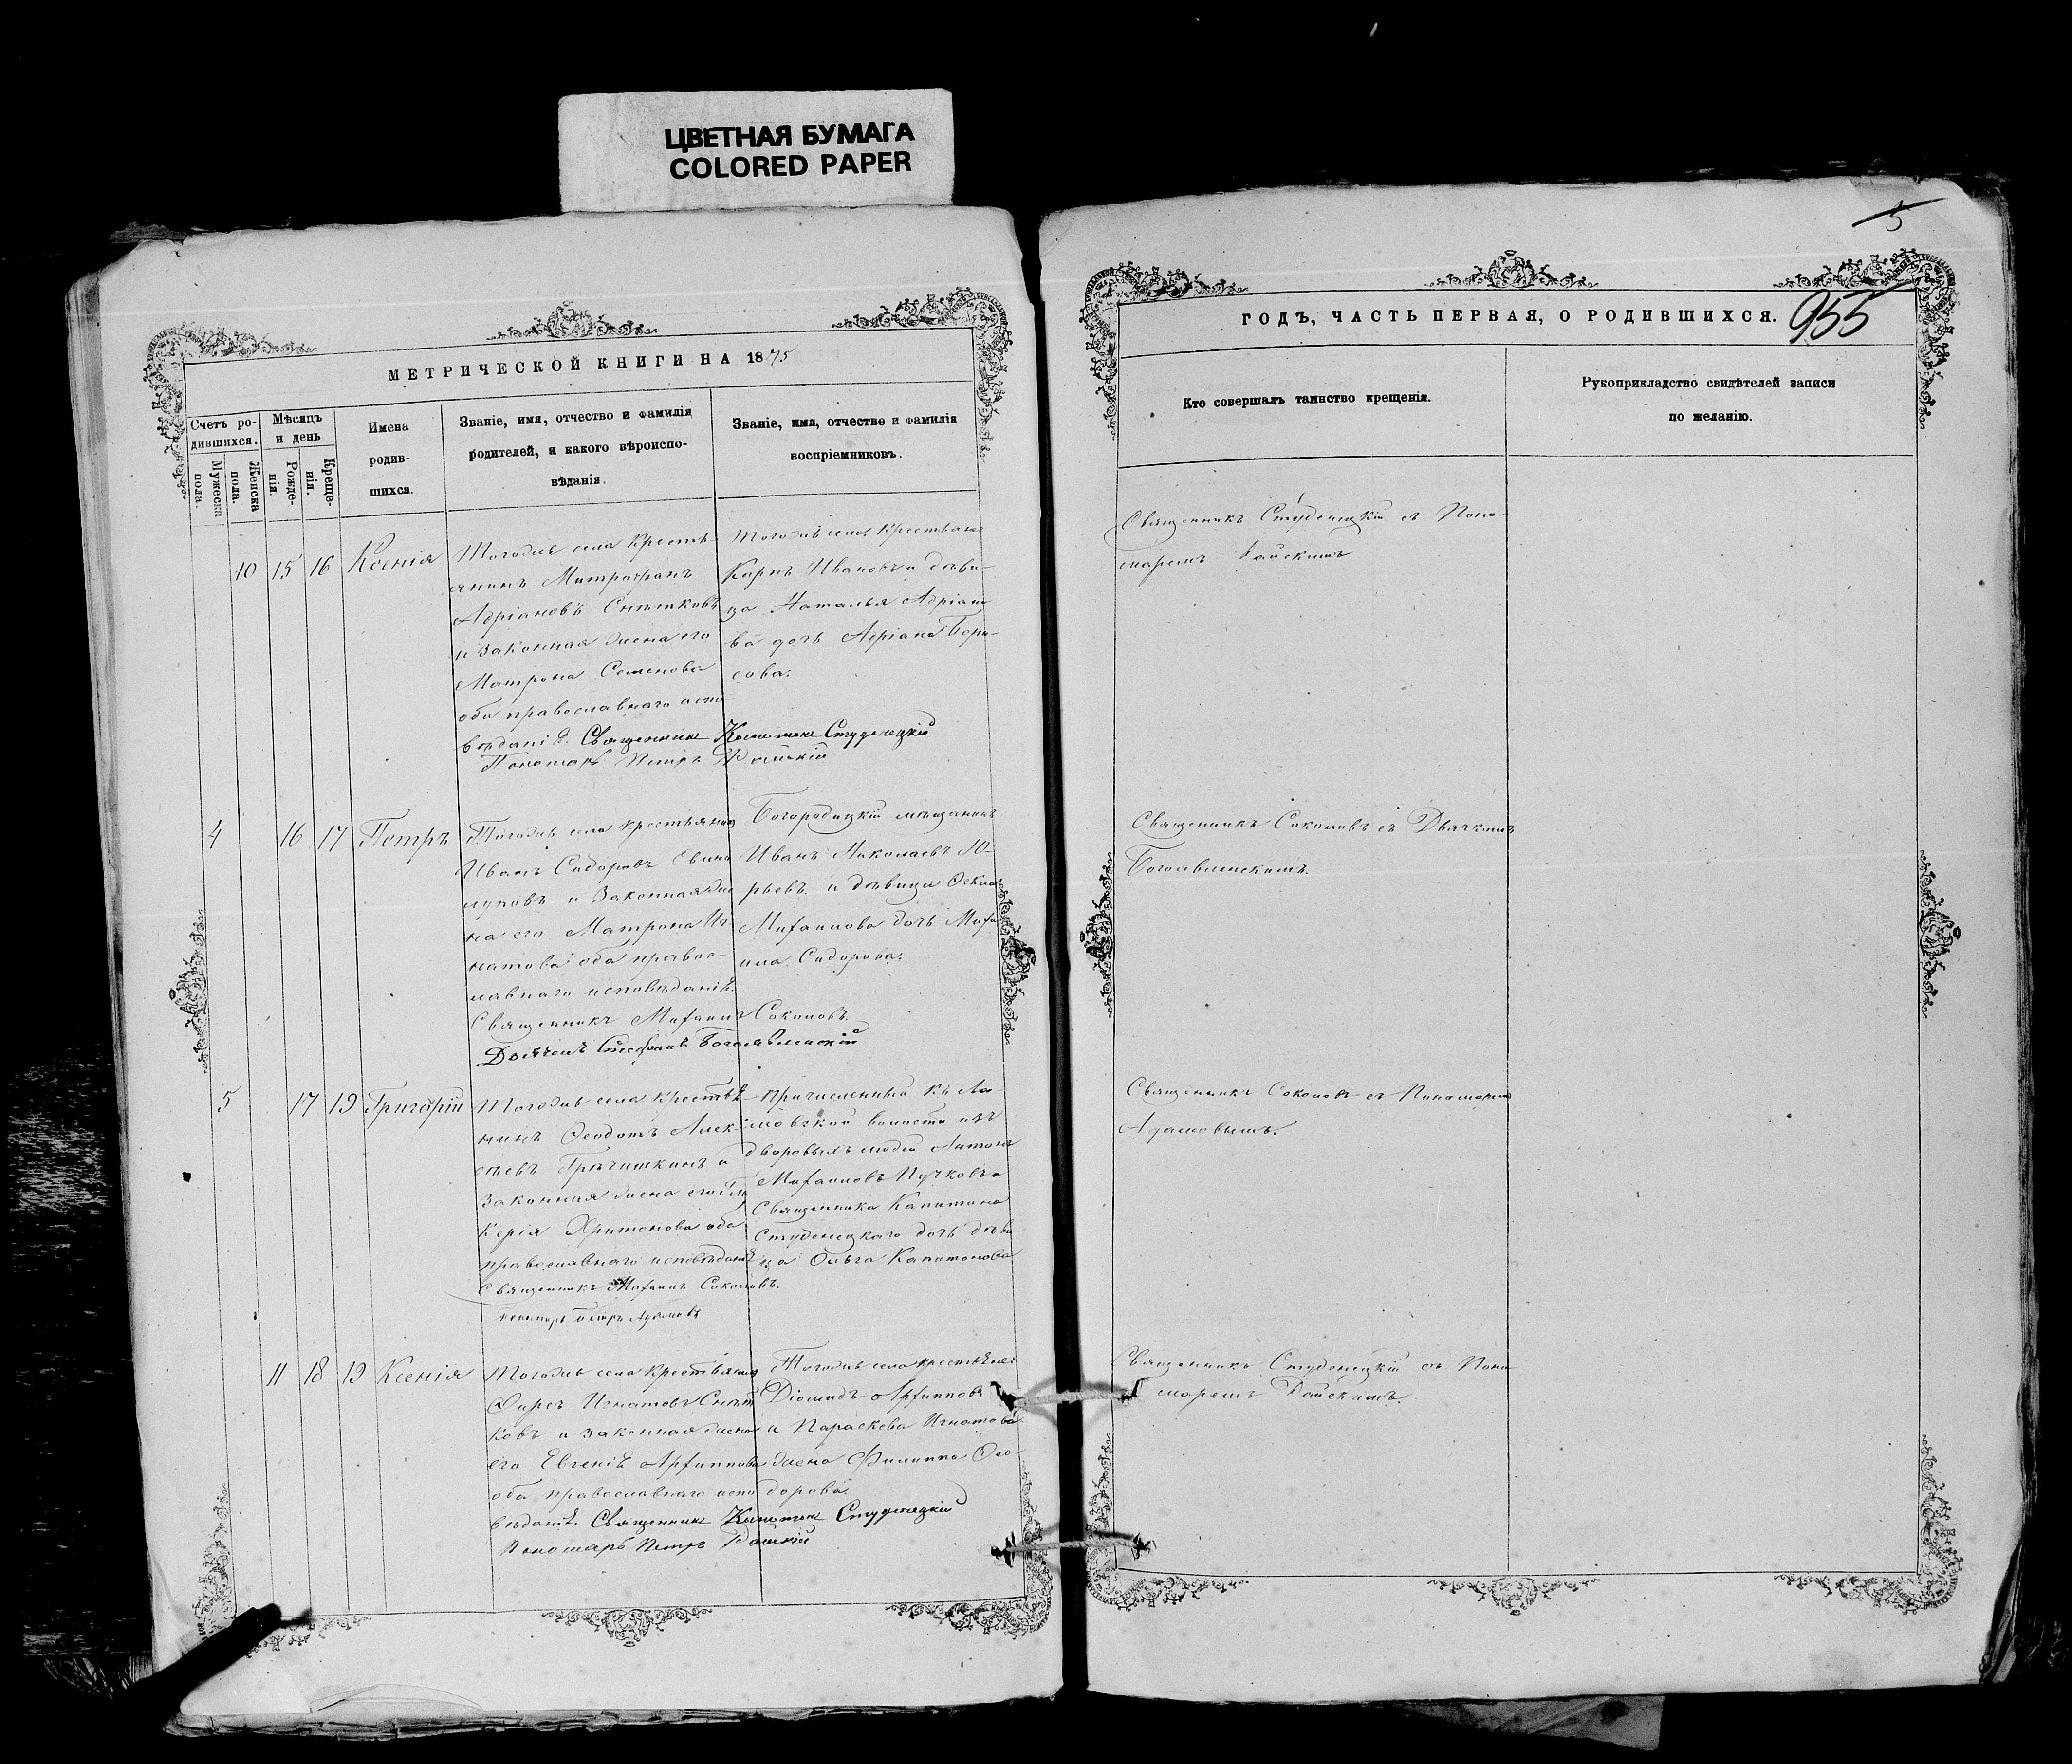 ЦВЕТНАЯ БУМАГА
COLORED PAPER
МЕТРИЧЕСКОЙ КНИГИ НА 1875
Счетъ ро-
дившихся.
Мужеска
пола.
Женска
пола.
Мѣсяцъ
и день
Рожде-
нія.
Креще-
нія.
Имена
родив-
шихся.
Званіе, имя, отчество и фамилія
родителей, и какого вѣроиспо-
вѣданія.
Званіе, имя, отчество и фамилія
воспріемниковъ.
10 15 16 Ксенія
Тогоже села кресть-
янинъ Митрофанъ
Адріановъ Снѣтковъ
и законная жена его
Матрона Семенова
оба православнаго испо
вѣданія. Священникъ Капитонъ Студенецкій
Пономарь Петръ Райскій
Тогоже села крестьяне
Карпъ Ивановъ и дѣви-
ца Наталья Адріано
ва дочь Адріана Бори-
сова.
4 16 17 Петръ
Тогоже села крестьянинъ
Иванъ Сидоровъ
и законная же
на его Матрона Иг-
натова оба правос-
лавнаго исповѣданія.
Священникъ Михаилъ Соколовъ.
Дьячекъ Стефанъ Богоявленскій
Богородицкій мѣщанинъ
Иванъ Николаевъ Ю-
рьевъ и дѣвица
Михаилова дочь Миха
ила Сидорова.
5 17 19 Григорій
Тогоже села крестья
нинъ Ѳеодотъ Алек-
сѣевъ Гречишкинъ и
законная жена его Гли
керія Хритонова оба
православнаго исповѣданія
Священникъ Михаилъ Соколовъ.
Пономарь Петръ Адамовъ
Причисленный къ
волости изъ
дворовыхъ людей Антонъ
Михаиловъ Пучковъ и
Священника Капитона
Студенецкаго дочь дѣви
ца Ольга Капитонова
11 18 19 Ксенія
Тогоже села крестьянинъ
Ѳирсъ Игнатовъ Снѣт
ковъ и законная жена
его Евгенія Архиппова
оба православнаго испо
вѣданія. Священникъ Капитонъ Студенецкій
Пономарь Петръ Райскій
Тогоже села крестьяне
Діомидъ Архипповъ
и Параскева Игнатова
жена Филиппа Ѳео-
дорова.
5
955
ГОДЪ, ЧАСТЬ ПЕРВАЯ, О РОДИВШИХСЯ.
Кто совершалъ таинство крещенія.
Рукоприкладство свидѣтелей записи
по желанію.
Священникъ Студенецкій съ Поно-
маремъ Райскимъ
Священникъ Соколовъ съ Дьячкомъ
Богоявленскимъ.
Священникъ Соколовъ съ Пономаремъ
Адамовымъ.
Священникъ Студенецкій съ Поно-
маремъ Райскимъ.